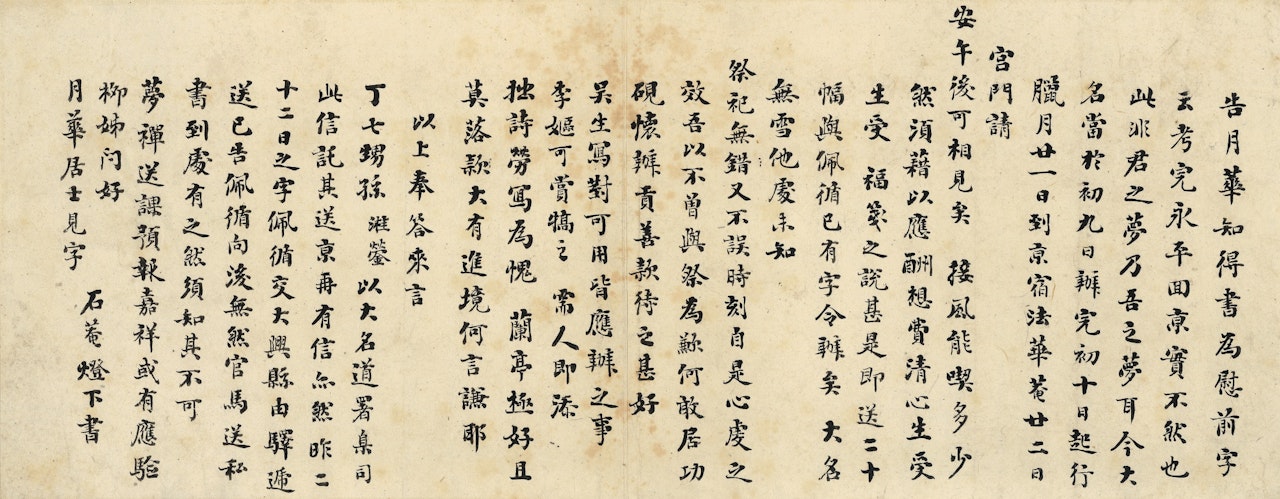 告月華知得書為慰前字
云考完永平回京實不然也
此非君之夢乃吾之夢耳今大
名當於初九日辦完初十日起行
臘月廿一日到京宿法華菴廿二日
宮門請
安午後可相見矣 接風能喫多少
然須藉以應酬想費清心生受
生受 福箋之說甚是即送二十
幅與佩循已有字令辦矣 大名
無雪他處未知
祭祀無錯又不誤時刻自是心虔之
效吾以不曾與祭為歉何敢居功
硯懷辦貢善款待之甚好
吳生寫對可用皆應辦之事
李嫗可賞犒之 需人即添
拙詩勞寫為愧 蘭亭極好且
莫落款大有進境何言謙耶
以上奉答來言
丁七甥孫 淮鎣 以大名道署臬司
此信託其送京再有信亦然昨二
十二日之字佩循交大興縣由驛遞
送已告佩循向後無然官馬送私
書到處有之然須知其不可
夢禪送課預報嘉祥或有應驗
柳姊問好
月華居士見字 石菴燈下書